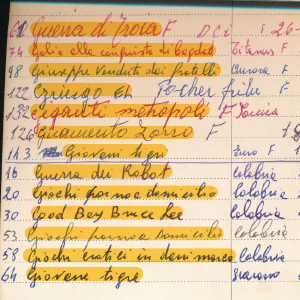 61 Guerra di Troia F D.C.I. 26-
74 Golia alla conquista di Bagdad Titanus F
98 Giuseppe venduto dai fratelli Aurora F
122 Gringo F
132 Giganti metropoli F
126 Giuramento Zorro F 18
143 Giovani tigri Euro F
16 Guerra dei Robot Calabria
20 Giochi porno a domicilio Calabria
30 Good Boy Bruce Lee Calabria
53 Giochi porno a domicilio Calabria
58 Giochi erotici in danimarca Calabria
64 Giovane tigre